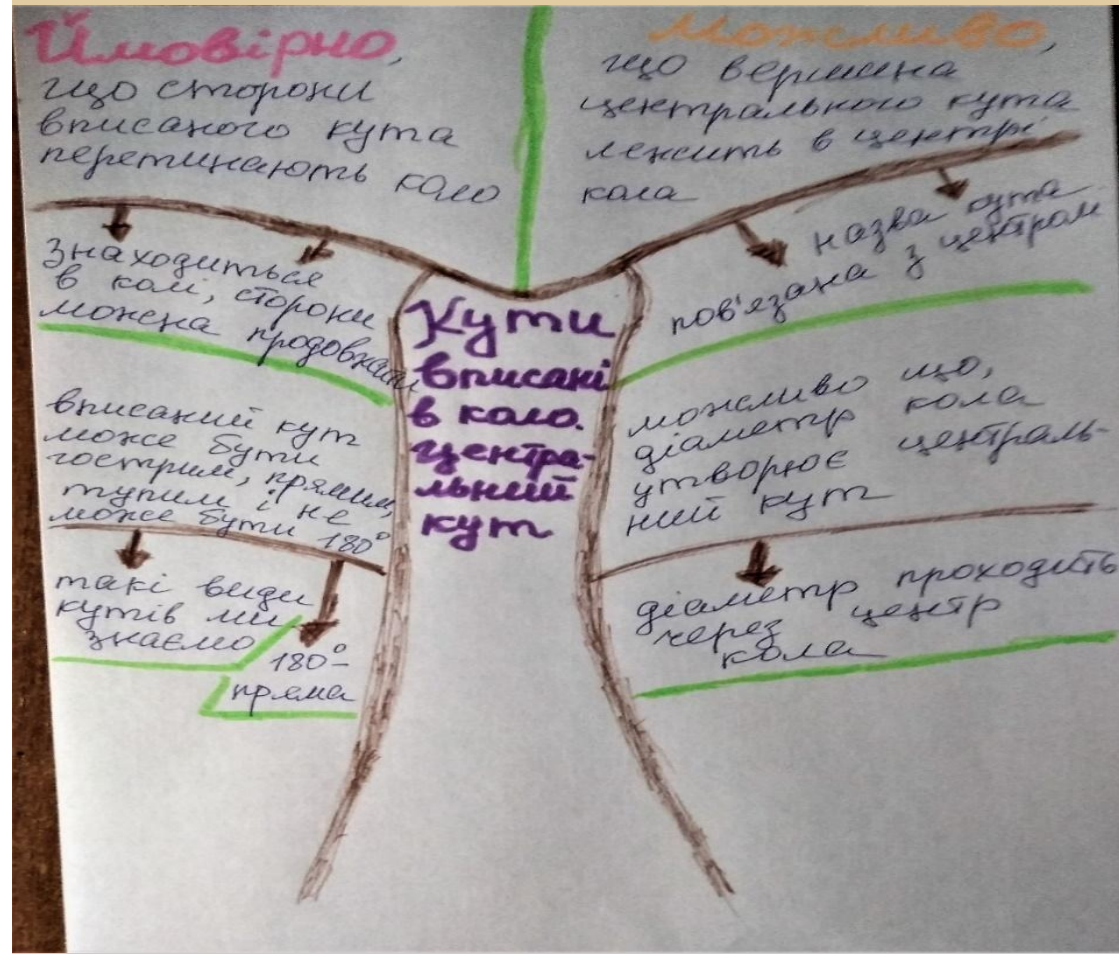 Ймовірно,
що сторони
вписаного кута
перетинають коло
знаходиться
в колі, сторони
можна продовжити
вписаний кут
може бути
гострим, прямим,
тупим і не
може бути 180°
такі види
кутів ми
знаємо
180°-
пряма
Кути
вписані
в коло.
Центра-
льний
кут
Можливо,
що вершина
центрального кута
лежить в центрі
кола
назва кута
пов'язана з центром
можливо що,
діаметр кола
утворює централь-
ний кут
діаметр проходить
через центр
кола